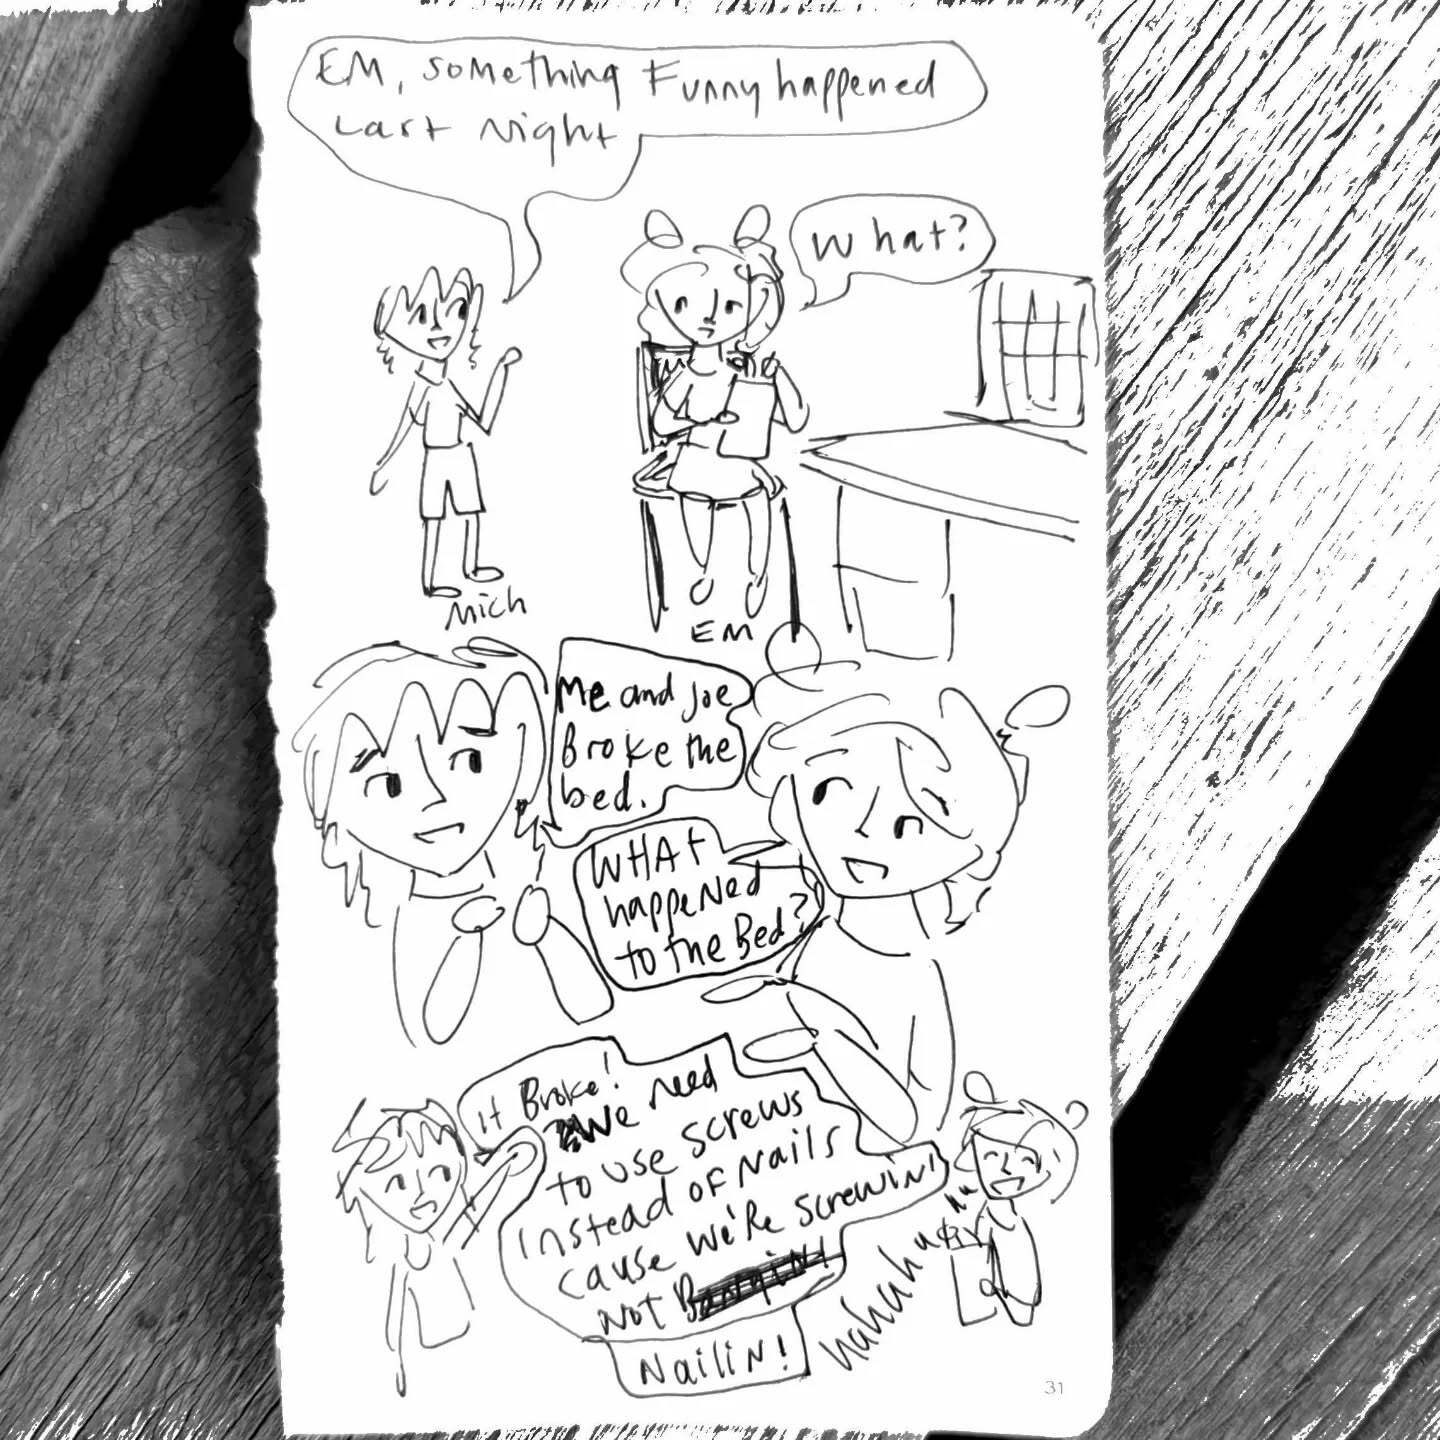 EM, something Funny happened
Last Night
What?
Mich
EM
Me and Joe
Broke the
bed.
WHAT
happened
to the Bed?
it Broke!
We need
to use screws
instead of Nails
cause we're screwin'
not Bangin'!
Nailin!
hahahahaha
31